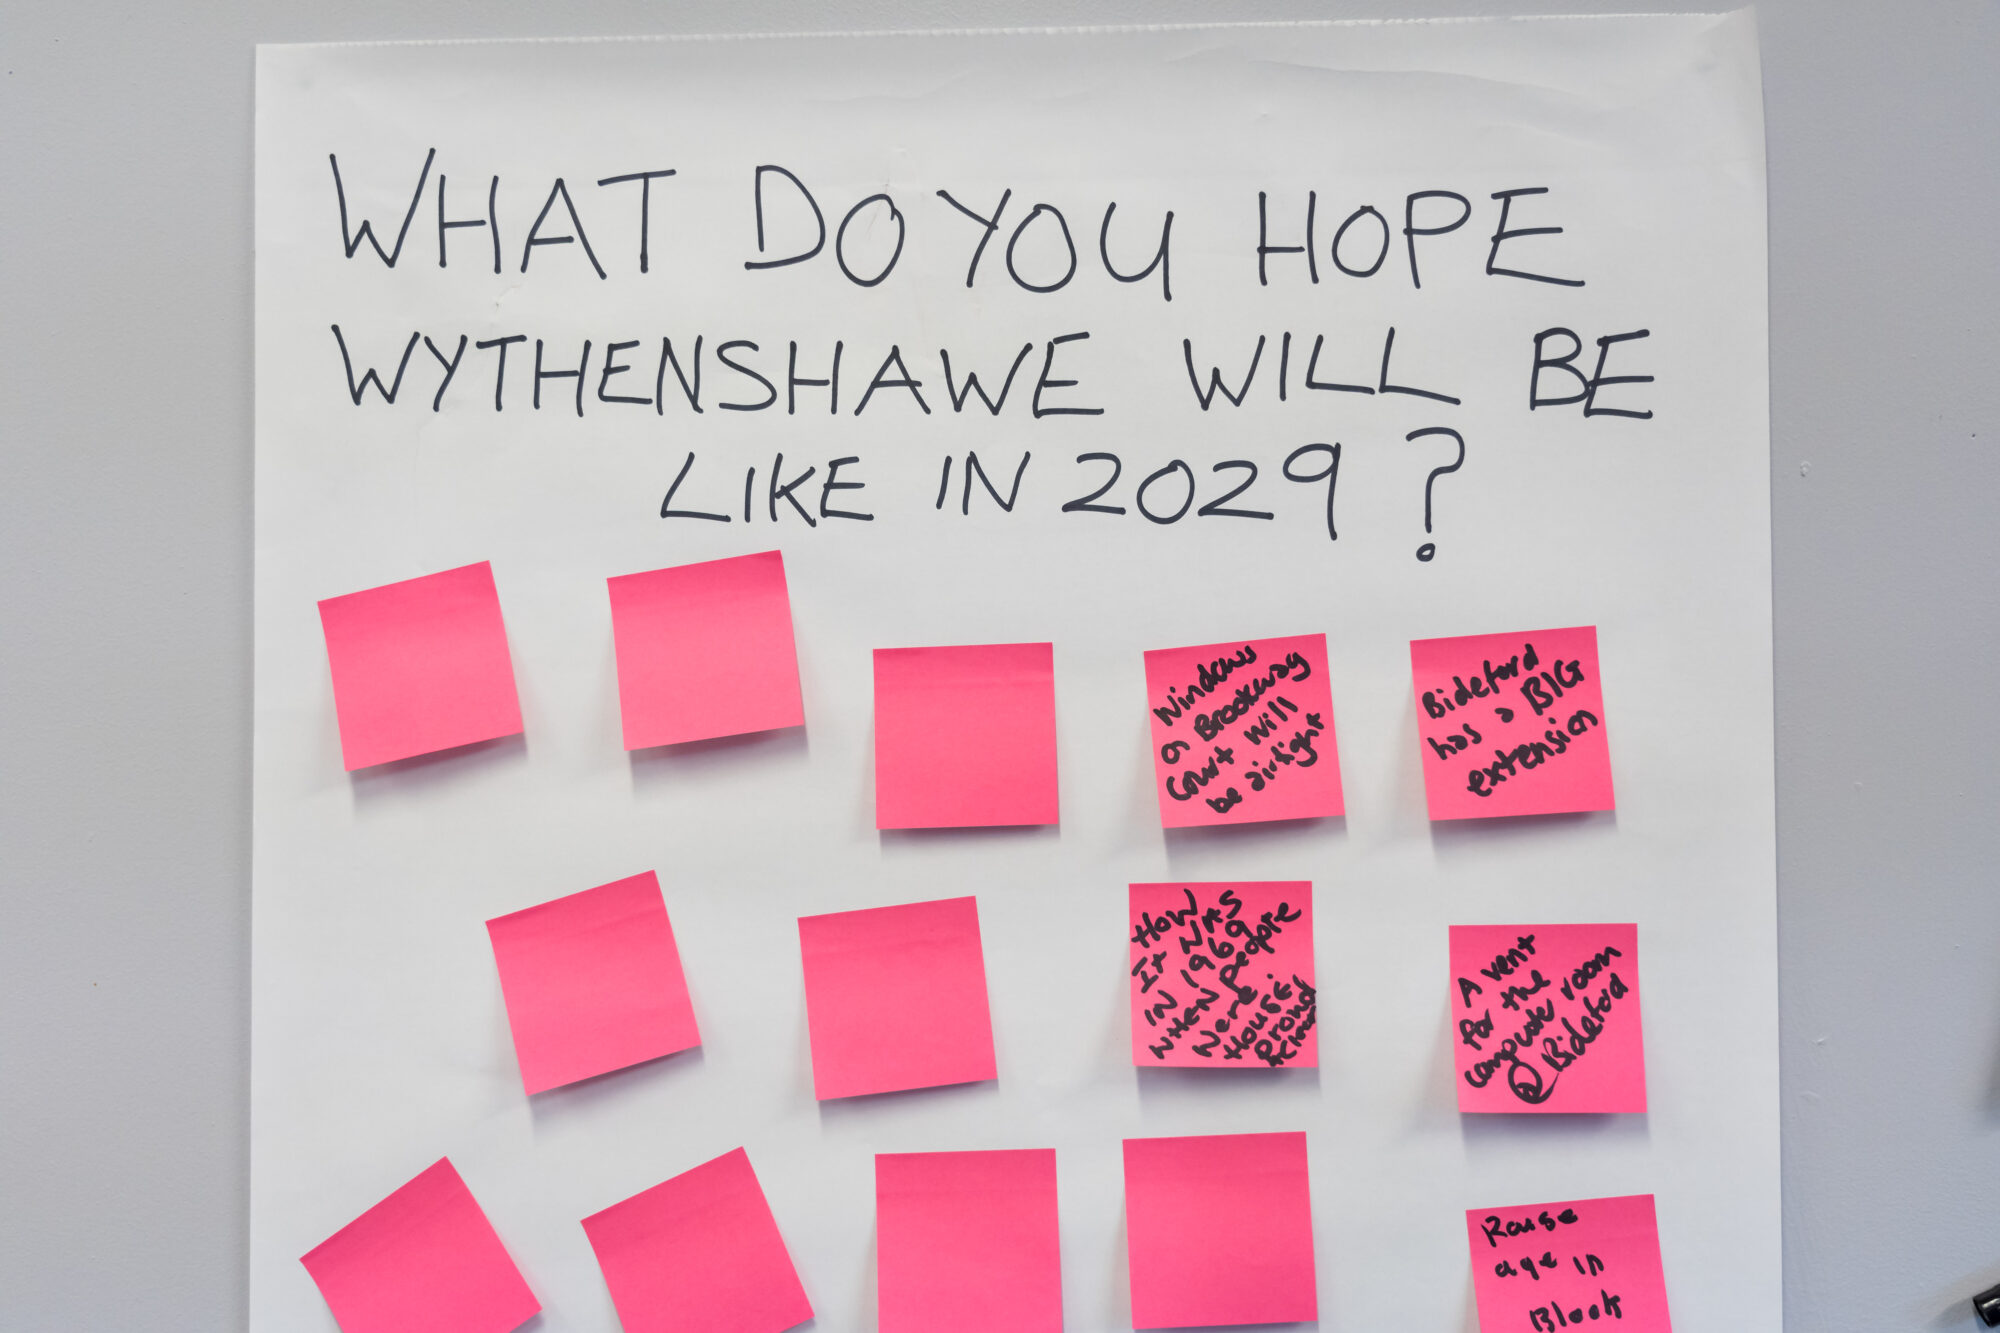 WHAT DO YOU HOPE
WYTHENSHAWE WILL BE
LIKE IN 2029?
Windows
on Brookway
Court will
be airtight
Bideford
has a BIG
extension
HOW
It WAS
IN 1969
WHEN people
Were
House.
Proud
A vent
for the
computer room
@Bideford
Raise
age in
Block